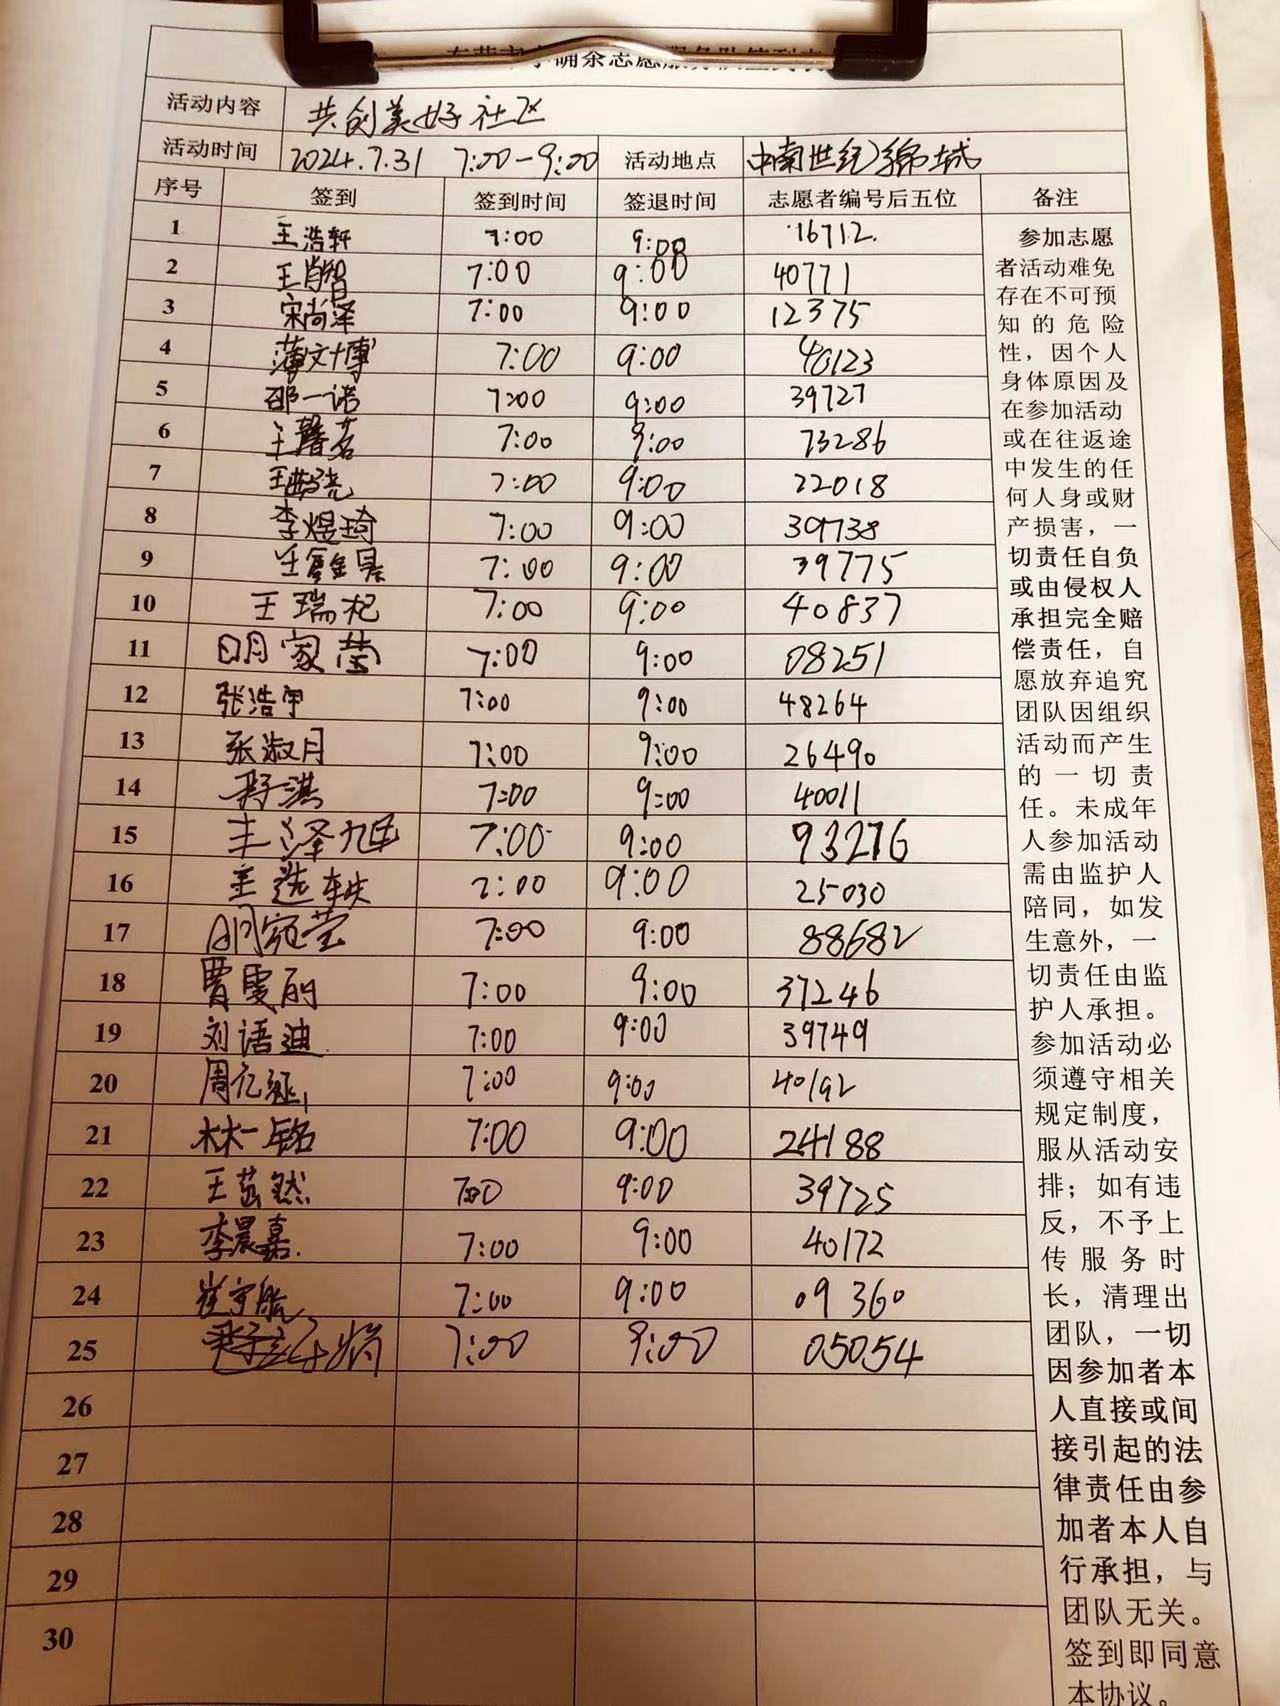 志愿服务队签到表
活动内容 共创美好社区
活动时间 2024.7.31 7:00-9:00 活动地点 中南世纪锦城
序号 签到 签到时间 签退时间 志愿者编号后五位 备注
1 王浩轩 7:00 9:00 16712
2 王肖智 7:00 9:00 40771
3 宋尚泽 7:00 9:00 12375
4 薄文博 7:00 9:00 40123
5 邵一诺 7:00 9:00 39727
6 王馨茗 7:00 9:00 73286
7 7:00 9:00 22018
8 李煜琦 7:00 9:00 39738
9 7:00 9:00 39775
10 王瑞杞 7:00 9:00 40837
11 明家莹 7:00 9:00 08251
12 张浩宇 7:00 9:00 48264
13 张淑月 7:00 9:00 26490
14 7:00 9:00 40011
15 7:00 9:00 93276
16 7:00 9:00 25030
17 明宛莹 7:00 9:00 88682
18 曹雯丽 7:00 9:00 37246
19 刘语迪 7:00 9:00 39749
20 7:00 9:00 40192
21 林一铭 7:00 9:00 24188
22 王苡然 7:00 9:00 39725
23 李晨嘉 7:00 9:00 40172
24 崔宇航 7:00 9:00 09360
25 7:00 9:00 05054
26
27
28
29
30
参加志愿
者活动难免
存在不可预
知的危险
性，因个人
身体原因及
在参加活动
或在往返途
中发生的任
何人身或财
产损害，一
切责任自负
或由侵权人
承担完全赔
偿责任，自
愿放弃追究
团队因组织
活动而产生
的一切责
任。未成年
人参加活动
需由监护人
陪同，如发
生意外，一
切责任由监
护人承担。
参加活动必
须遵守相关
规定制度，
服从活动安
排；如有违
反，不予上
传服务时
长，清理出
团队，一切
因参加者本
人直接或间
接引起的法
律责任由参
加者本人自
行承担，与
团队无关。
签到即同意
本协议。